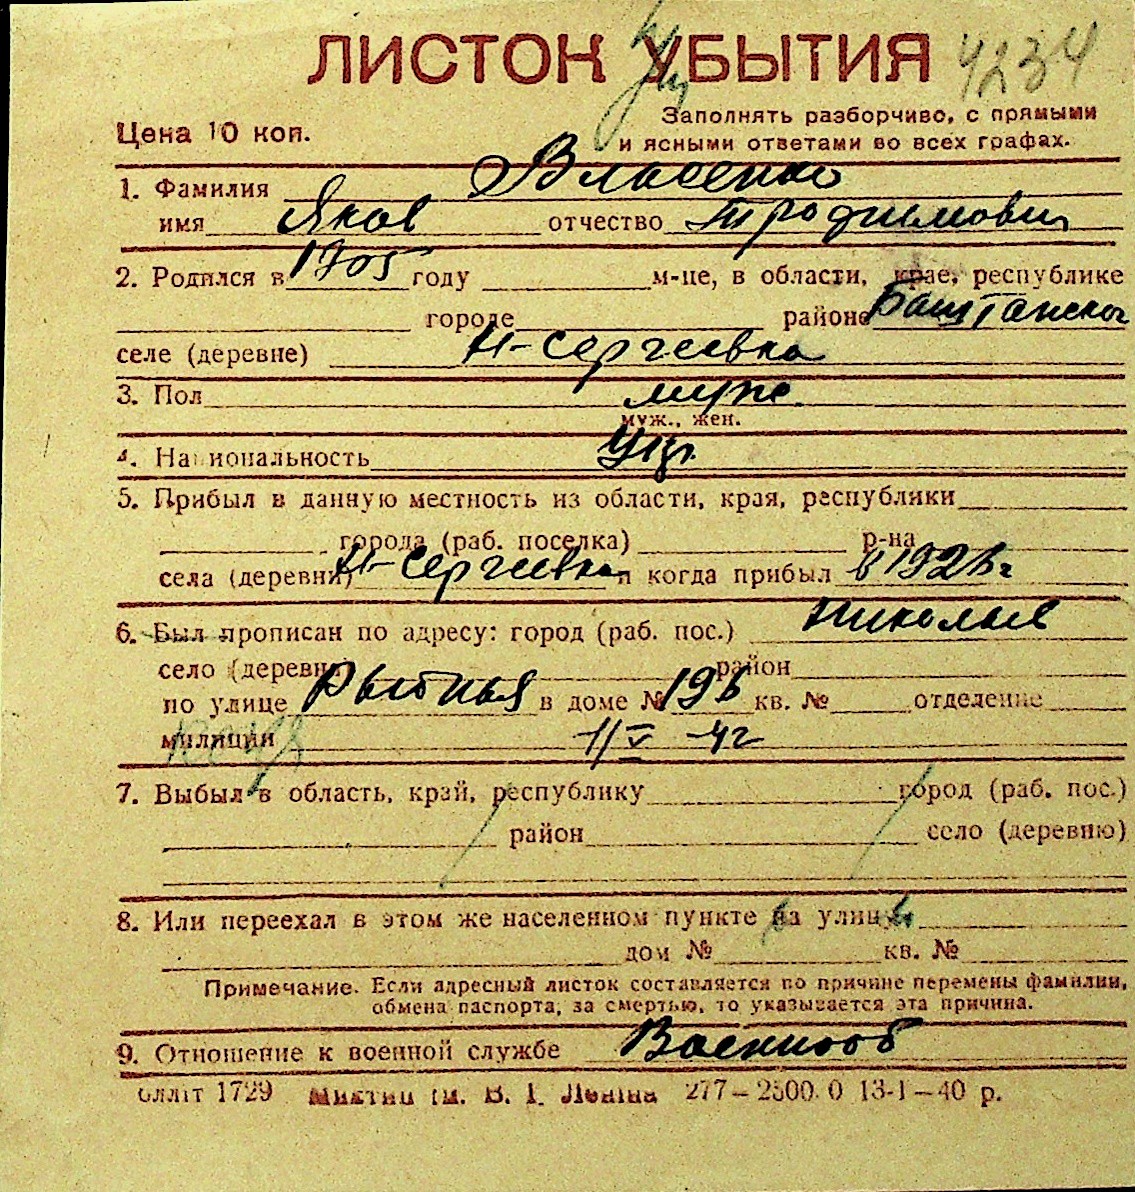 ЛИСТОК УБЫТИЯ 4234
Цена 10 коп.
Заполнять разборчиво, с прямыми
и ясными ответами во всех графах.
1. Фамилия Власенко
имя Яков отчество Трофимович
2. Родился в 1905 году м-це, в области, крае, республике
городе районе Баштанском
селе (деревне) Н-Сергеевка
3. Пол муж.
муж., жен.
4. Национальность Укр.
5. Прибыл в данную местность из области, края, республики
города (раб. поселка) р-на
села (деревни) Н-Сергеевка и когда прибыл в 1926 г
6. Был прописан по адресу: город (раб. пос.) Николаев
село (деревня) район
по улице Рыбная в доме № 196 кв. № отделение
милиции 11/V -42
7. Выбыл в область, край, республику город (раб. пос.)
район село (деревню)
8. Или переехал в этом же населенном пункте на улицу
дом № кв. №
Примечание. Если адресный листок составляется по причине перемены фамилии,
обмена паспорта, за смертью, то указывается эта причина.
9. Отношение к военной службе Военнооб
1729 ім. В. І. Леніна 277–2500.0 13-1–40 р.